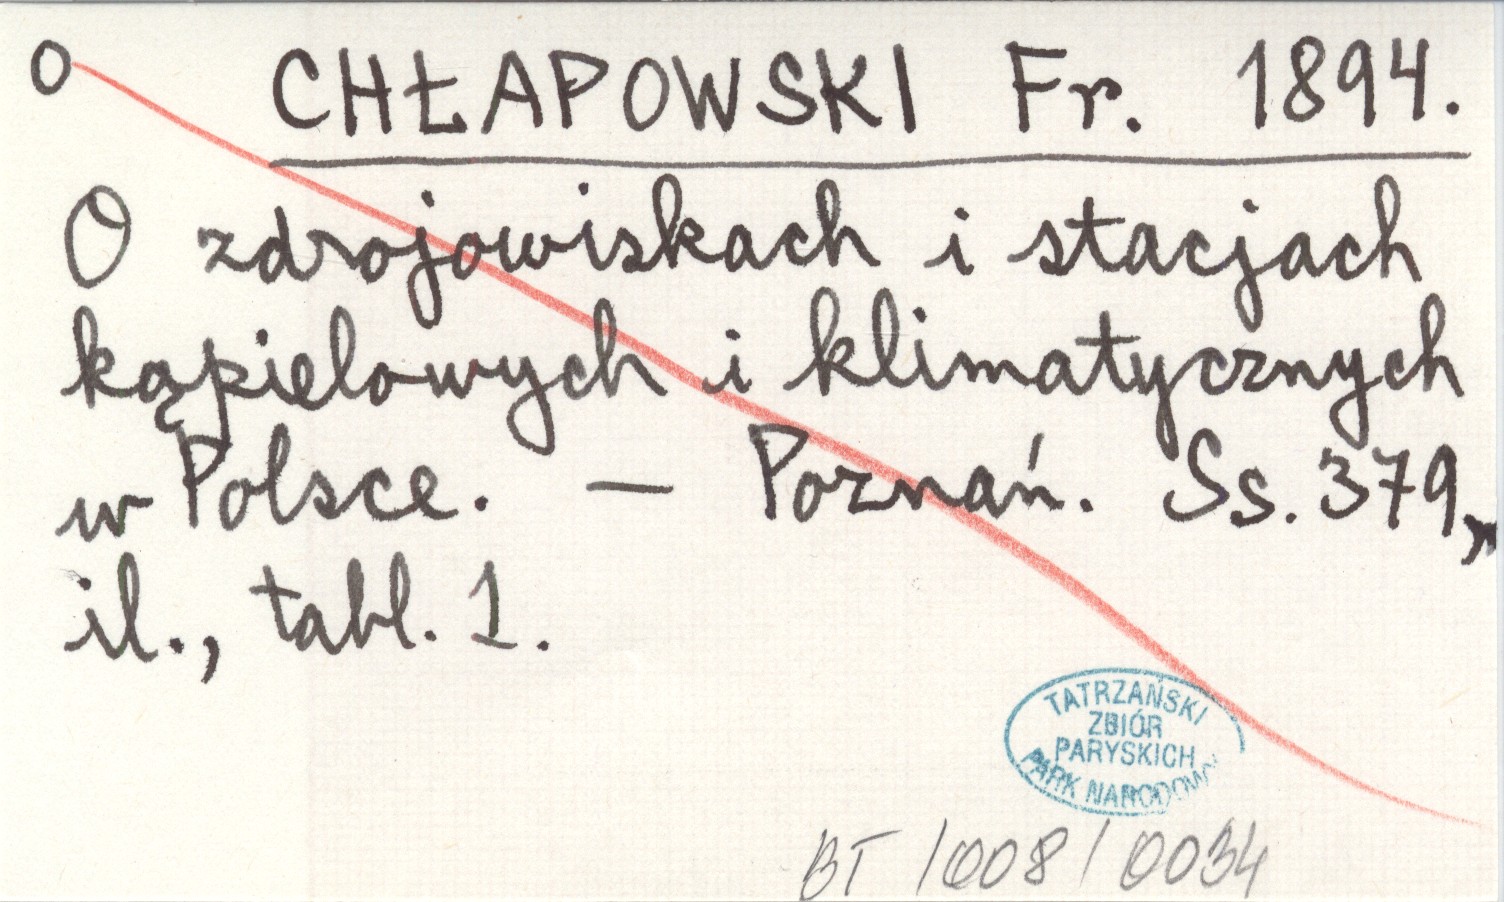 O CHŁAPOWSKI Fr. 1894.
O zdrojowiskach i stacjach
kąpielowych i klimatycznych
w Polsce. — Poznań. Ss. 379,
il., tabl. 1.
TATRZAŃSKI
ZBIÓR
PARYSKICH
PARK NARODOWY
BT /008/0034